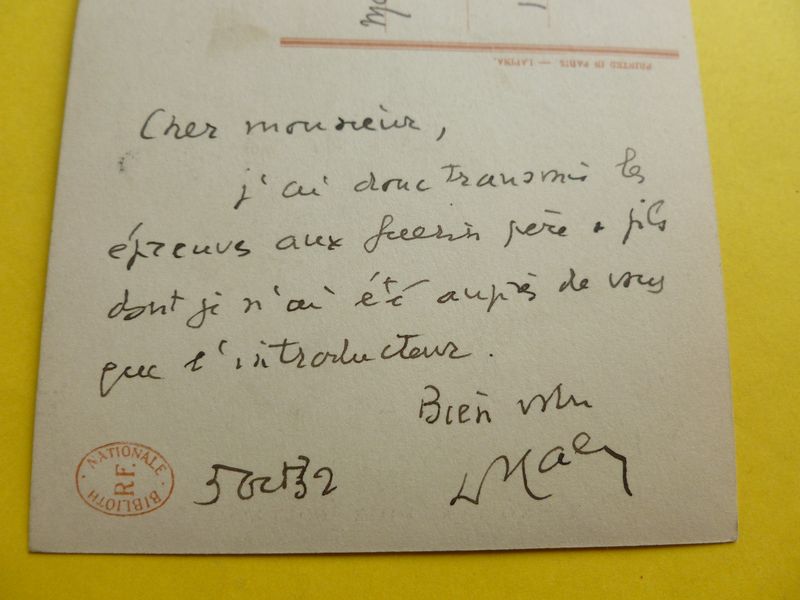 PRINTED IN PARIS — LAPINA.
Cher monsieur,
j'ai donc transmis les
épreuves aux Guérin père & fils
dont je n'ai été auprès de vous
que l'introducteur.
Bien vôtre
5 Oct 32
BIBLIOTH NATIONALE
R.F.